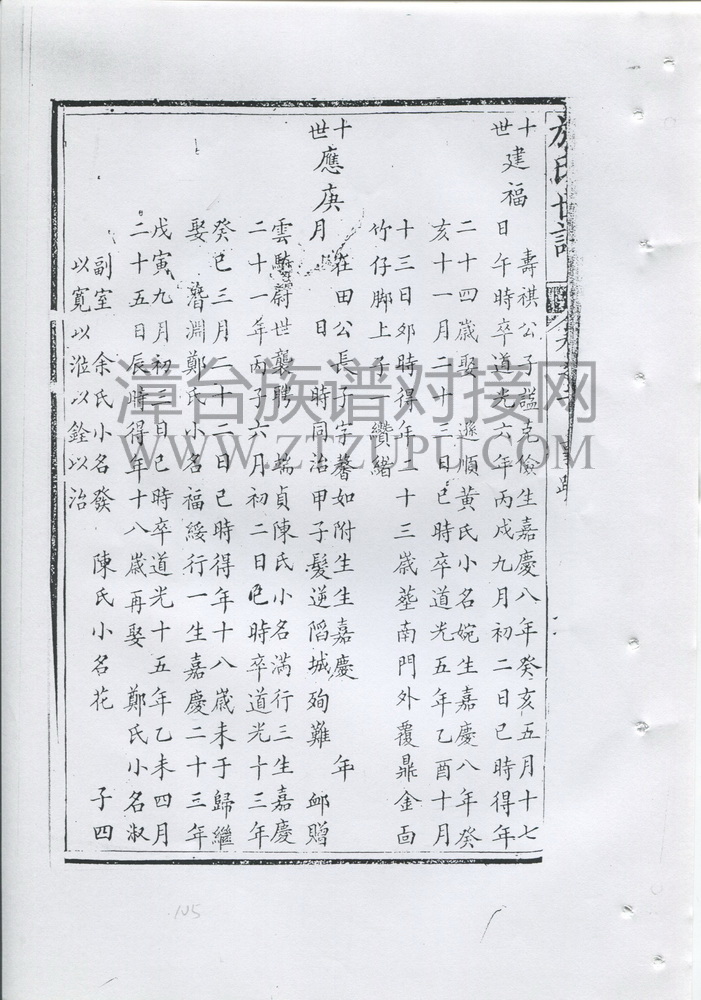 氏世譜
十世 建福 壽祺公子諡克儉生嘉慶八年癸亥五月十七
日午時卒道光六年丙戌九月初二日巳時得年
二十四歲娶 遜順黃氏小名婉生嘉慶八年癸
亥十一月二十三日巳時卒道光五年乙酉十月
十三日卯時得年二十三歲塟南門外覆鼎金面
竹仔脚上子一纘緒
十世 應庚 在田公長子字馨如附生生嘉慶 年
月 日 時同治甲子髮逆陷城殉難 卹贈
雲騎尉世襲聘 端貞陳氏小名滿行三生嘉慶
二十一年丙子六月初二日巳時卒道光十三年
癸巳三月二十二日巳時得年十八歲未于歸繼
娶 淵鄭氏小名福綏行一生嘉慶二十三年
戊寅九月初三日巳時卒道光十五年乙未四月
二十五日辰時得年十八歲再娶 鄭氏小名淑
副室 余氏小名發 陳氏小名花 子四
以寬以淮以銓以治
漳台族谱对接网
WWW.ZTZUPU.COM
105